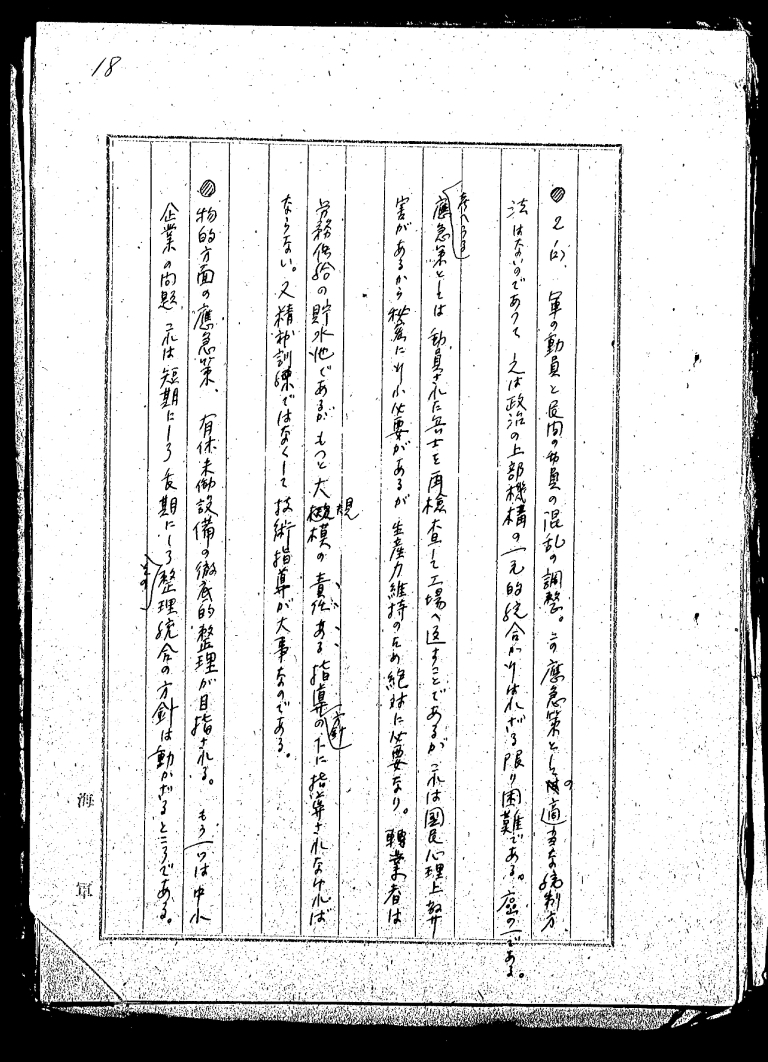 18
● 2 (ロ)、軍の動員と民間の動員の混乱の調整。この應急策としての適当な統制方
法はないのであつて 之は政治の上部機構の一元的統合が行はれざる限り困難である。癌の一である。
考へらるる
應急策としては 動員された兵士を再檢査して工場へ返すことであるが これは國民心理上弊
害があるから 秘密に行ふ必要があるが 生産力維持のため絶対に必要なり。轉業者は
労務供給の貯水池であるが もつと大規模の 責任ある 指導の下に指導されなければ
方針
ならない。又精神訓練ではなくして 技術指導が大事なのである。
● 物的方面の應急策、 有休未働設備の徹底的整理が目指される。 もう一つは中小
企業の問題 これは短期にしろ長期にしろ整理統合の方針は動かざるところである。
その
海軍